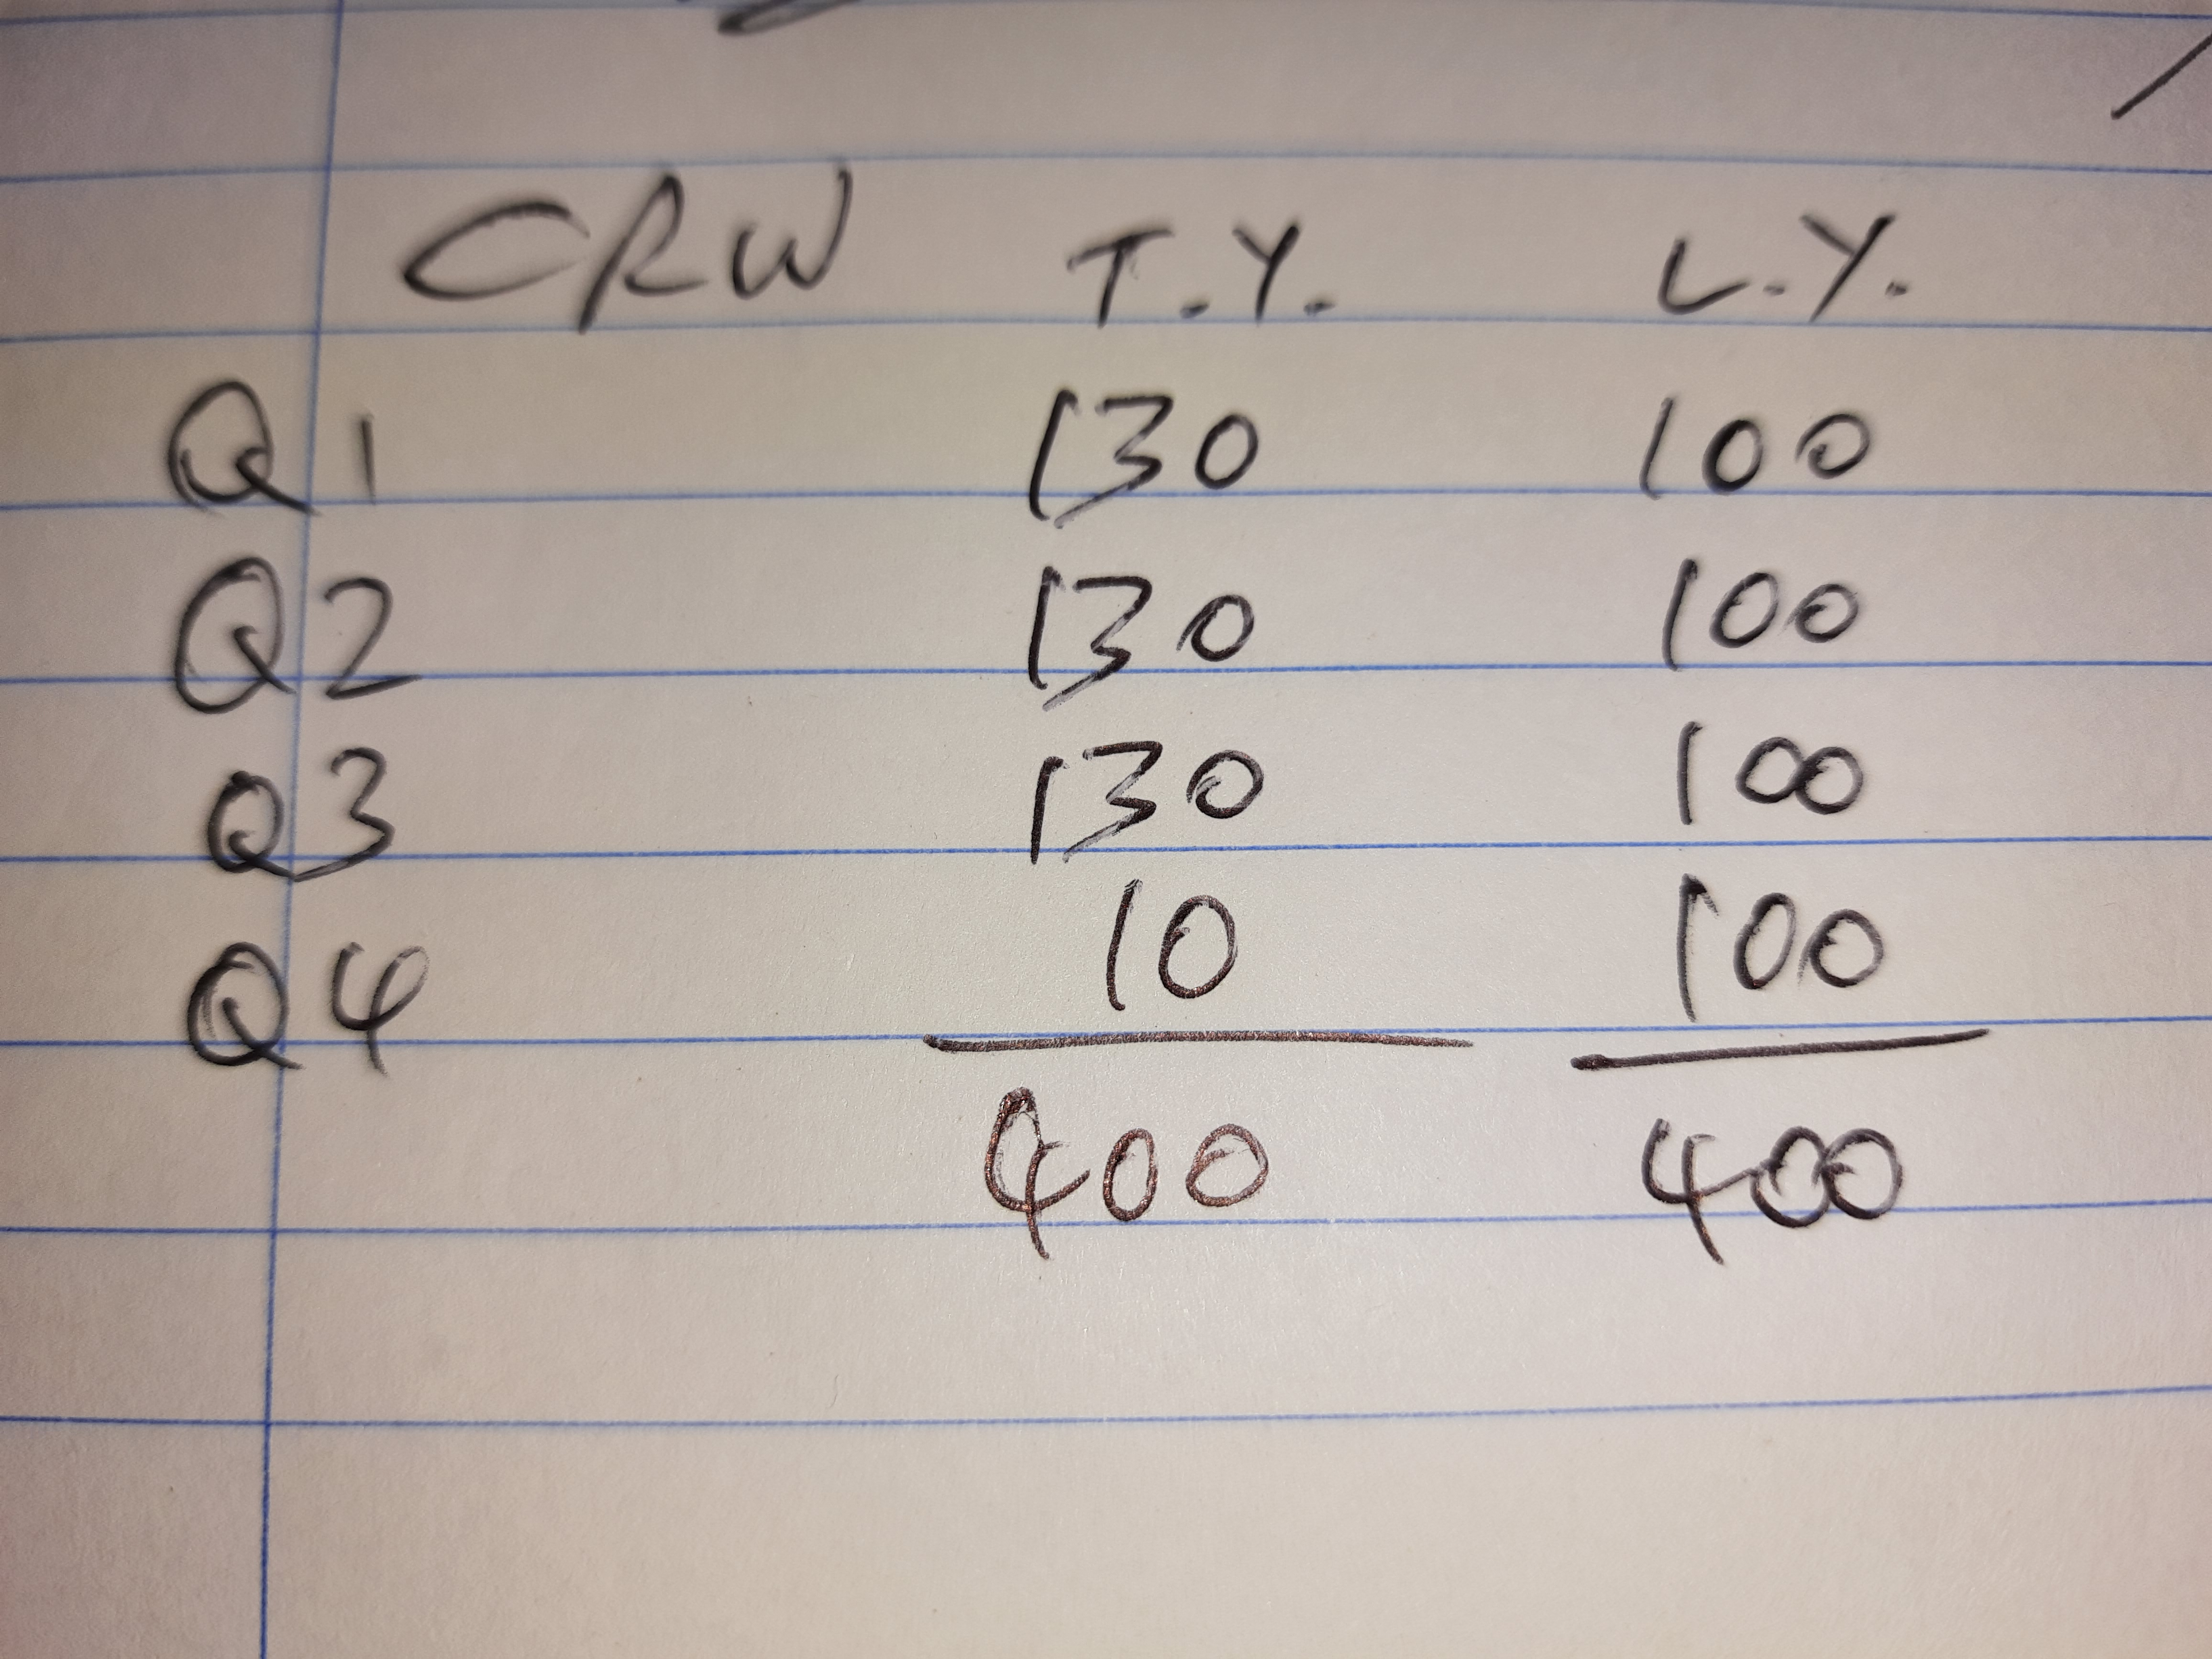 CRW T.Y. L.Y.
Q1 130 100
Q2 130 100
Q3 130 100
Q4 10 100
400 400